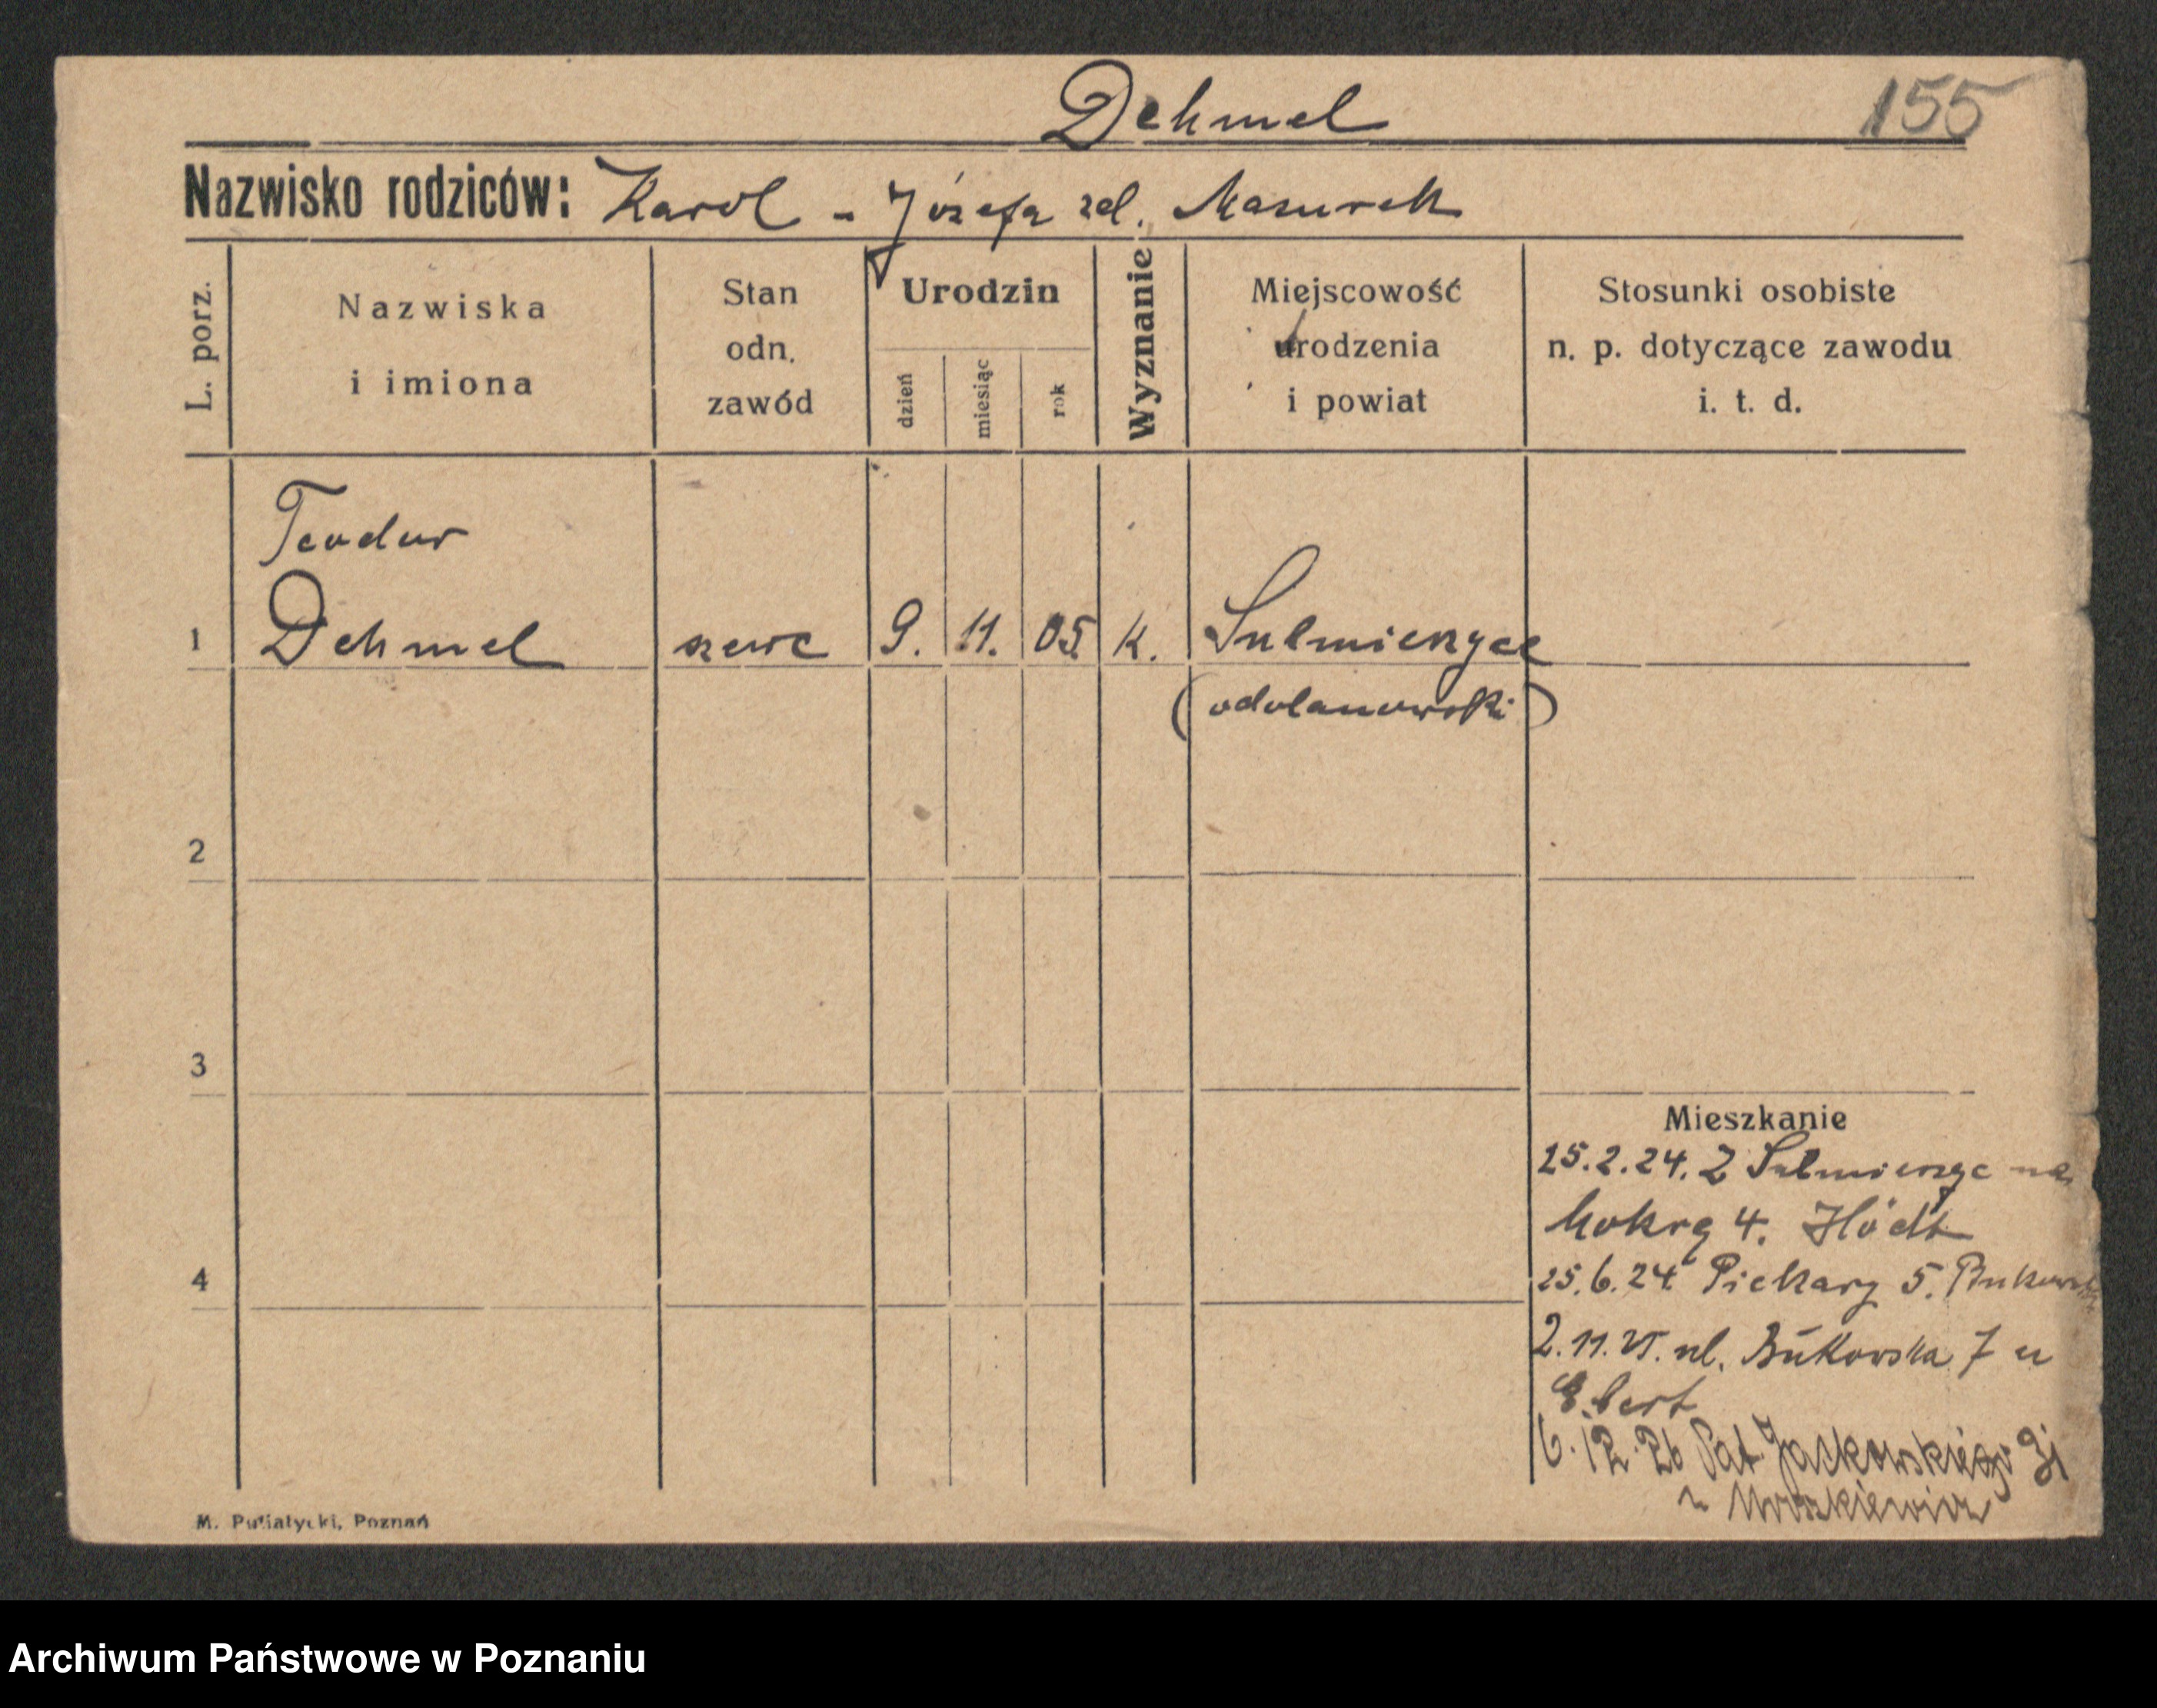 Dehmel
155
Nazwisko rodziców: Karol - Józefa zd. Mazurek
L. porz.
Nazwiska
i imiona
Stan
odn.
zawód
Urodzin
dzień
miesiąc
rok
Wyznanie
Miejscowość
urodzenia
i powiat
Stosunki osobiste
n. p. dotyczące zawodu
i. t. d.
Teodor
1 Dehmel szewc 9. 11. 05. k. Sulmierzyce
(odolanowski)
2
3
Mieszkanie
25.2.24. Z Sulmierzyc na
Mokrą 4. Hödt
4
25.6.24 Piekary 5.
2.11.25. ul. Bukowska 7 u
Ebert
6.12.26 Pat. Jackowskiego
u
M. Putiatycki, Poznań
Archiwum Państwowe w Poznaniu